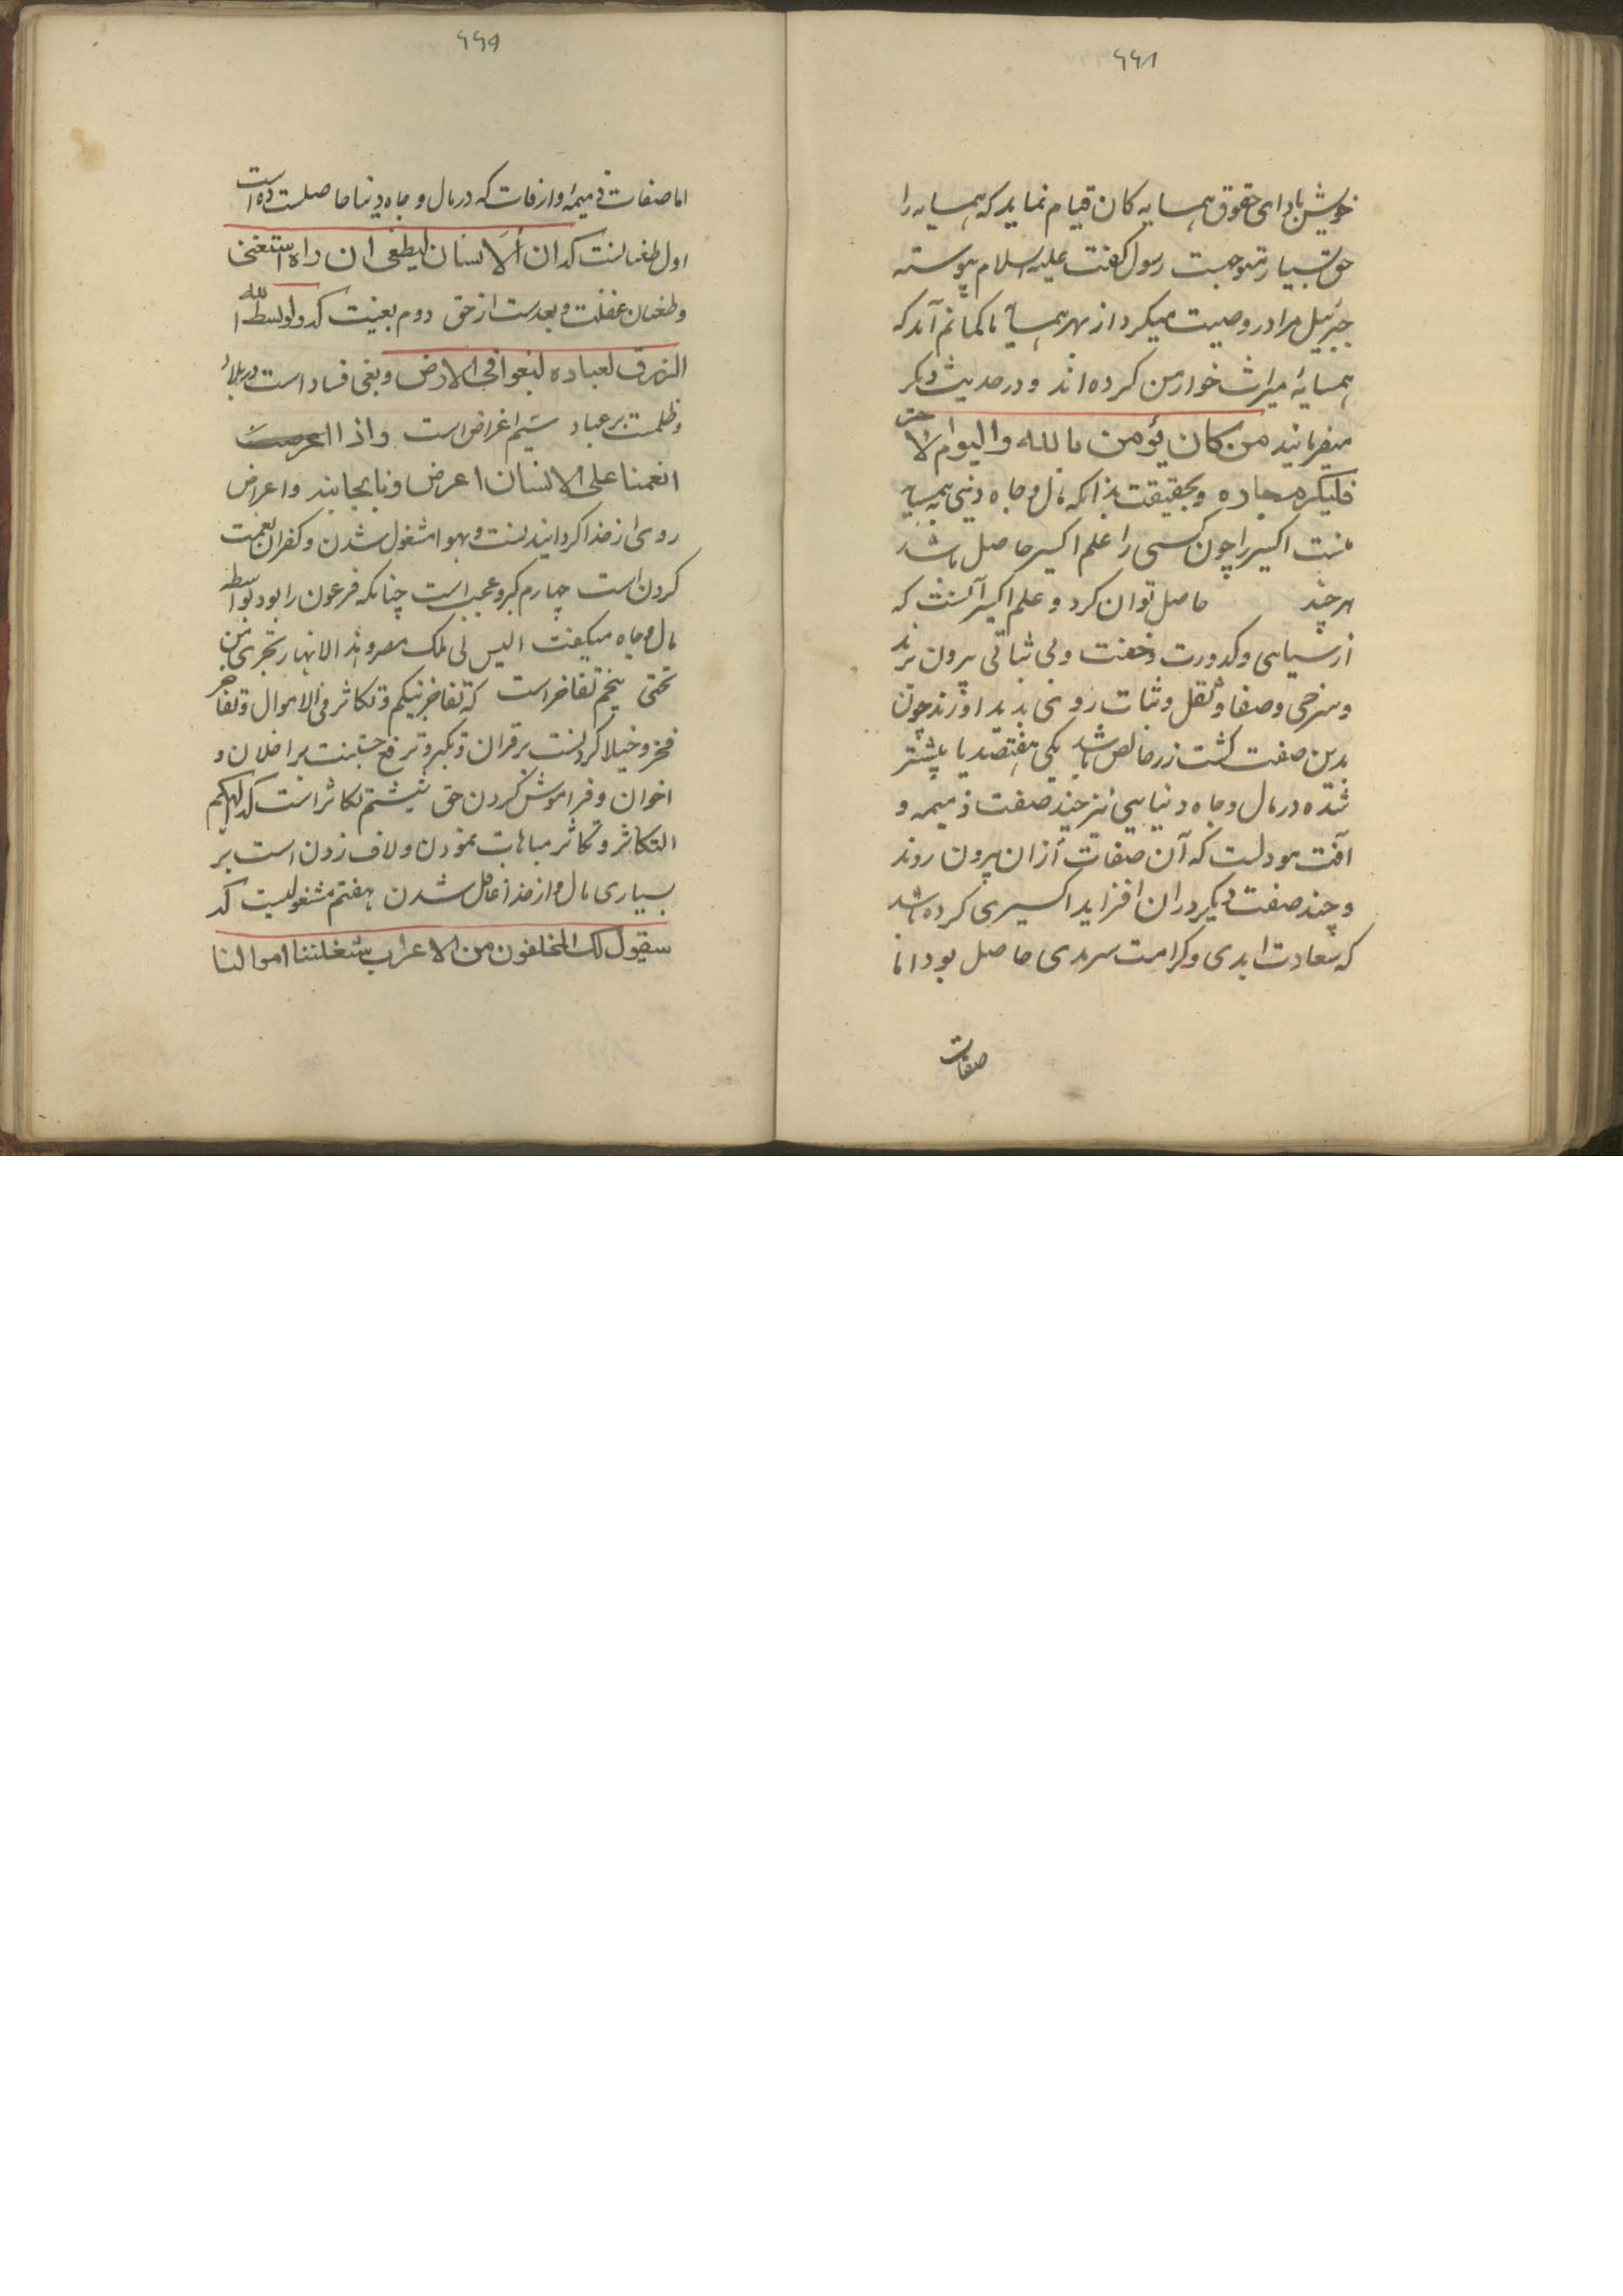 ۶۶۸
خویش بادای حقوق همسایه کان قیام نماید که همسایه را
حق بسیار متوجبست رسول گفت علیه السلام پیوسته
جبرئیل مرا در وصیت میکرد از بهر همسایه تا کمانم آمد که
همسایه میراث خوار من کرده اند و در حدیث دیکر
میفرمانید من کان یؤمن بالله والیوام الاخر
فلیکرم جاره و بحقیقت بدانکه مال و جاه دنیی بهمسایه
منت اکسیر را چون کسی را علم اکسیر حاصل باشد
هر چند حاصل توان کرد و علم اکسیر آنست که
از سیاهی و کدورت و خفت و بی ثباتی بیرون برند
و سرخی و صفا و ثقل و ثبات رو نی پدید اورند چون
بدین صفت کشت زر خالص باشد یکی هفتصد یا بیشتر
شده در مال و جاه دنیایی نیز چند صفت ذمیمه و
آفت مودلست که آن صفات ازان بیرون روند
و چند صفت دیکر دران افزاید اکسیری کرده باشد
که سعادت ابدی و کرامت سرمدی حاصل بود اما
صفات
۶۶۹
اما صفات ذمیمه وازفات که در مال و جاه دنیا حاصلست ده است
اول طغیانست که ان الانسان لیطغی ان راه استغنی
و طغیان غفلت و بعدست از حق دوم بغیت که ولو بسط الله
الرزق لعباده لبغوا فی الارض و بغی فساد است در بلاد
و ظلمست بر عباد سیم اعراض است واذا
انعمنا علی الانسان اعرض ونا بجانبه و اعراض
روی از خدا کردانیدنست و بهوا مشغول شدن و کفران نعمت
کردن است چهارم کبر و عجب است چنانکه فرعون را بود بواسطه
مال و جاه میکفت الیس لی ملک مصر و هذه الانهار تجری من
تحتی پنجم تفاخر است که تفاخر بینکم و تکاثر فی الاموال و تفاخر
فخر و خیلا کردنست بر قران و تکبر و ترفع جستنست بر اخلان و
اخوان و فراموش کردن حق ششتم تکاثر است که الهیکم
التکاثر و تکاثر مباهات نمودن و لاف زدن است بر
بسیاری مال و از خدا غافل شدن هفتم مشغولیست که
سیقول لک المخلفون من الاعراب شغلتنا اموالنا